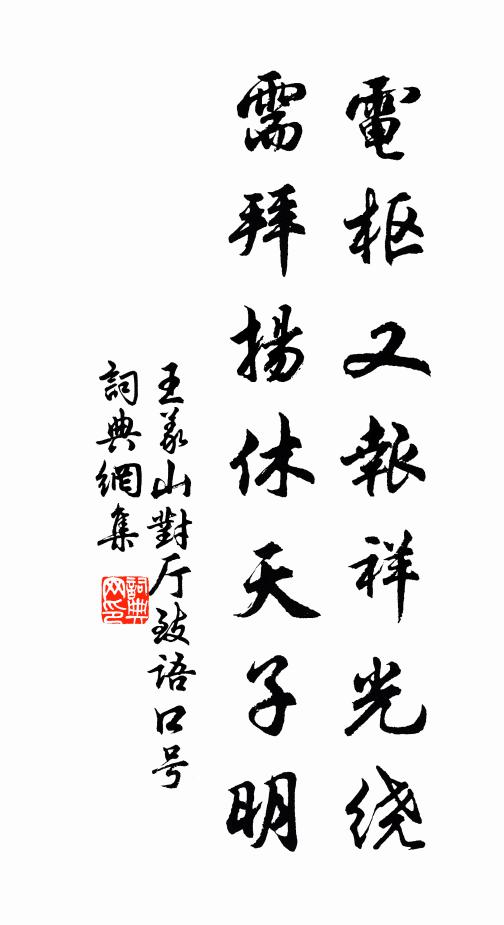 電枢又報祥光绕
需拜揚休天子明
王義山對厅致语口号
詞典網集
詞典網印